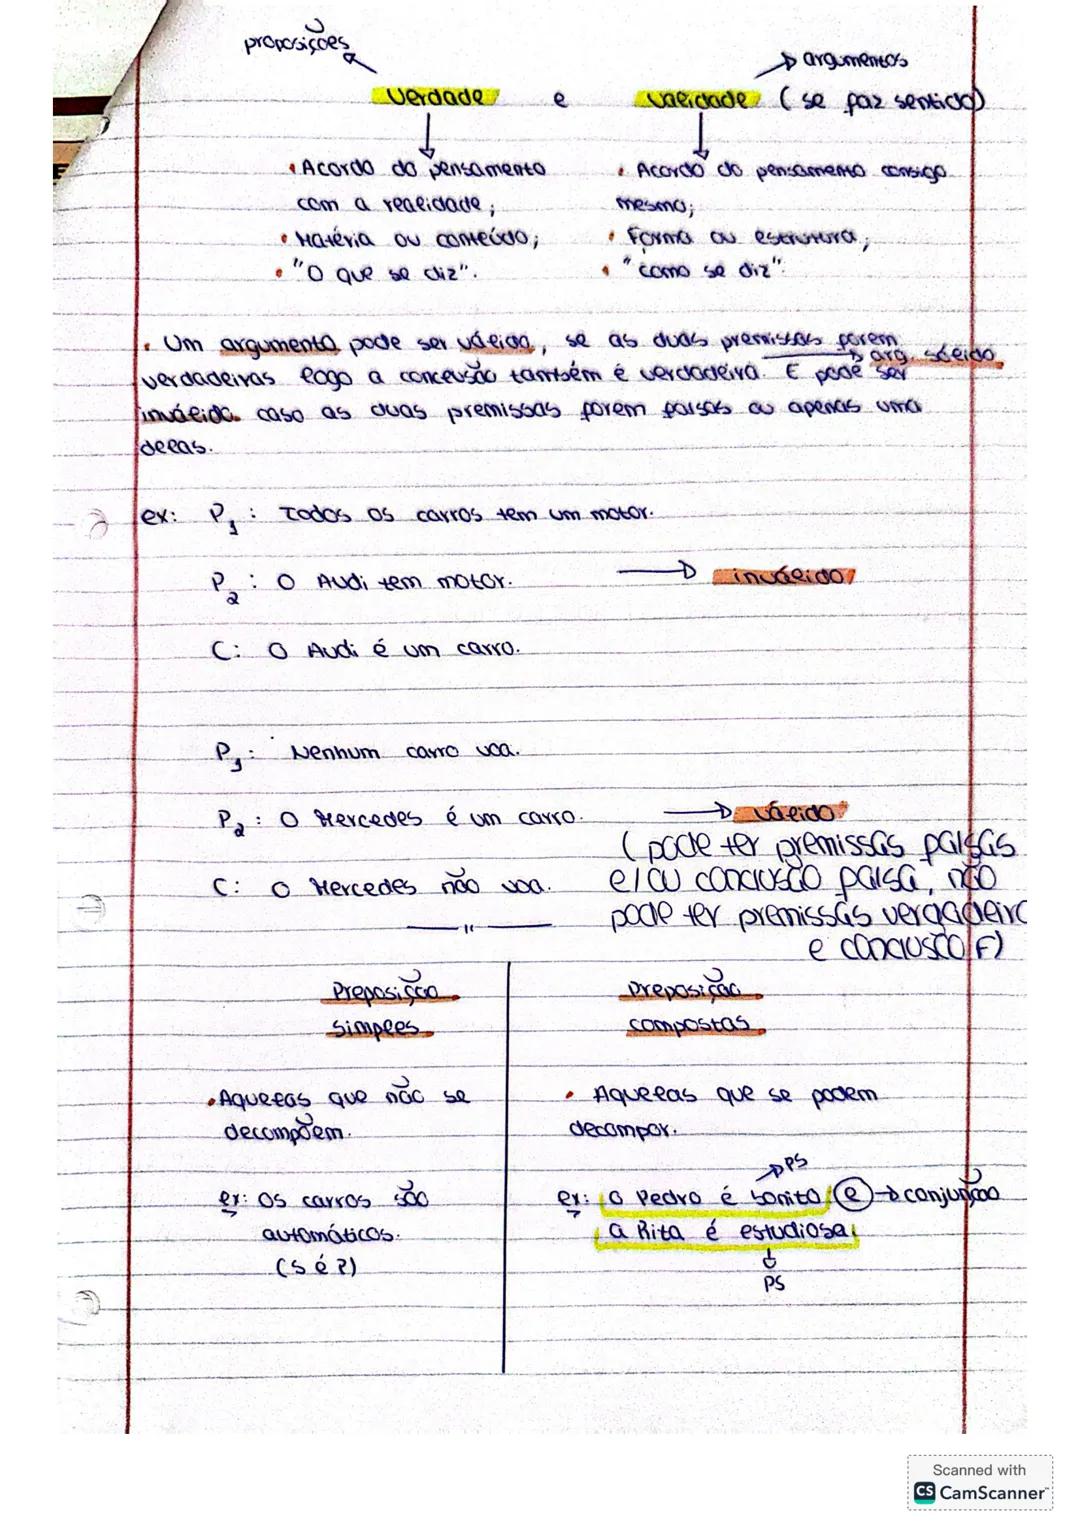 proposições
argumentos
Verdade e Validade (se faz sentido)
• Acordo do pensamento
com a realidade;
• Matéria ou conteúdo;
• "O que se diz".
• Acordo do pensamento consigo
mesmo;
• Forma ou estrutura;
• "como se diz".
• Um argumento pode ser válido, se as duas premissas forem
arg. sólido
verdadeiras logo a conclusão também é verdadeira. E pode ser
inválido caso as duas premissas forem falsas ou apenas uma
delas.
ex: P1: Todos os carros tem um motor.
P2: O Audi tem motor. → inválido
C: O Audi é um carro.
P1: Nenhum carro voa.
P2: O Mercedes é um carro. → válido
(pode ter premissas falsas
C: O Mercedes não voa. e/ou conclusão falsa, não
pode ter premissas verdadeira
e conclusão F)
Preposição
simples
Preposição
compostas
• Aquelas que não se
decompõem.
• Aquelas que se podem
decompor.
PS
ex: Os carros são
automáticos.
(S é P)
ex: O Pedro é bonito e → conjunção
a Rita é estudiosa
PS
Scanned with
CS CamScanner